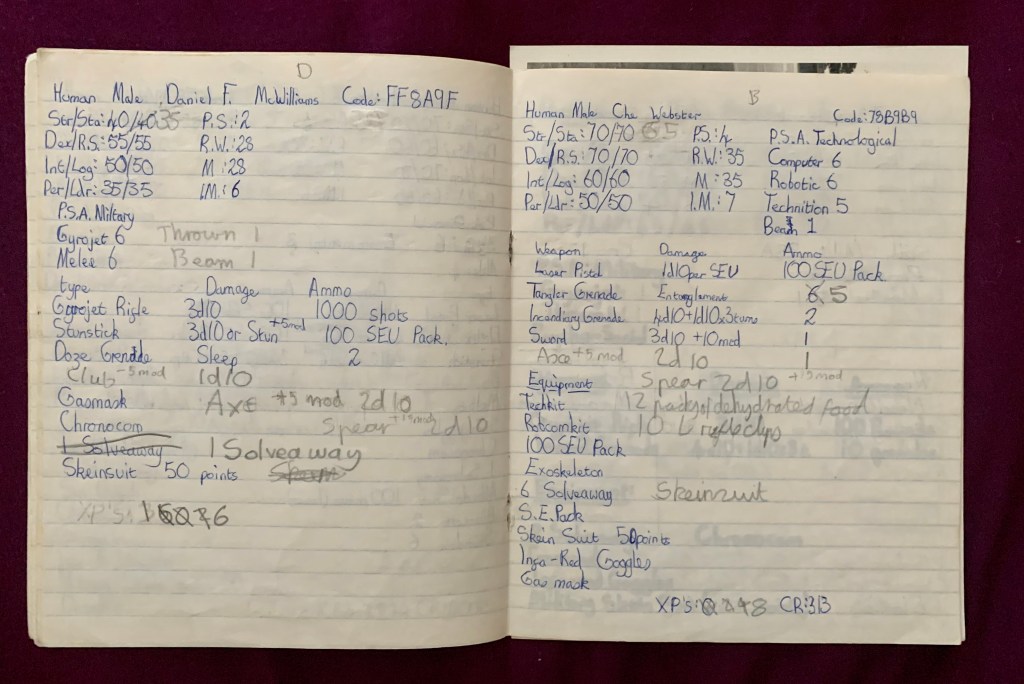 D
Human Male Daniel F. McWilliams Code: FF8A9F
Str/Sta: 40/40 35 P.S.: 2
Dex/R.S: 55/55 R.W.: 28
Int/Log: 50/50 M.: 28
Per/Ldr: 35/35 I.M.: 6
P.S.A. Military
Gyrojet 6 Thrown 1
Melee 6 Beam 1
type Damage Ammo
Gyrojet Rifle 3d10 1000 shots
Stunstick 3d10 or Stun +5mod 100 SEU Pack.
Doze Grenade Sleep 2
Club -5 mod 1d10
Gasmask Axe +5 mod 2d10
Chronocom Spear +15mod 2d10
1 Solveaway 1 Solveaway
Skeinsuit 50 points
XP's:
B
Human Male Che Webster Code: 78B9B9
Str/Sta: 70/70 65 P.S.: 4 P.S.A. Technological
Dex/R.S: 70/70 R.W.: 35 Computer 6
Int/Log: 60/60 M: 35 Robotic 6
Per/Ldr: 50/50 I.M.: 7 Technition 5
Beam 1
Weapon Damage Ammo
Laser Pistol 1d10 per SEU 100 SEU Pack
Tangler Grenade Entanglement 6 5
Incendiary Grenade 4d10+1d10x3turns 2
Sword 3d10 +10mod 1
Axe +5 mod 2d10 1
Equipment Spear 2d10 +15mod
Techkit 12 packs/dehydrated food
Robcomkit 10 L rifle clips
100 SEU Pack
Exoskeleton
6 Solveaway Skeinsuit
S.E. Pack
Skein Suit 50points
Infa-Red Goggles
Gas mask
XP's: CR:313